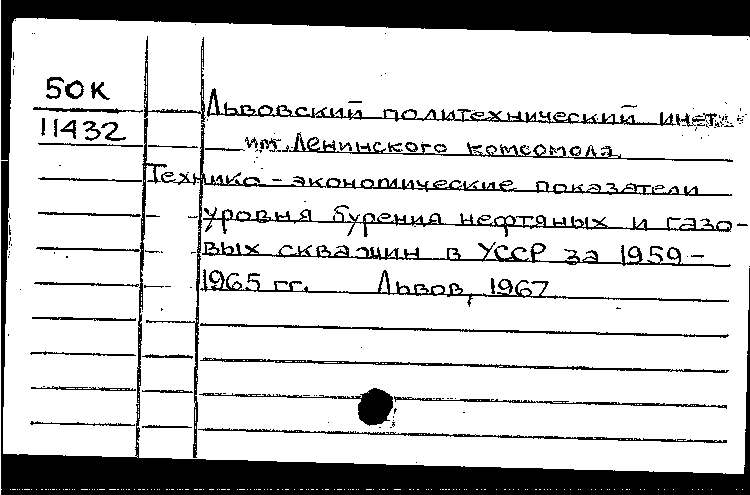 50К
11432
Львовский политехнический инст.
им. Ленинского комсомола.
Технико-экономические показатели
уровня бурения нефтяных и газо-
вых скважин в УССР за 1959-
1965 гг. Львов, 1967